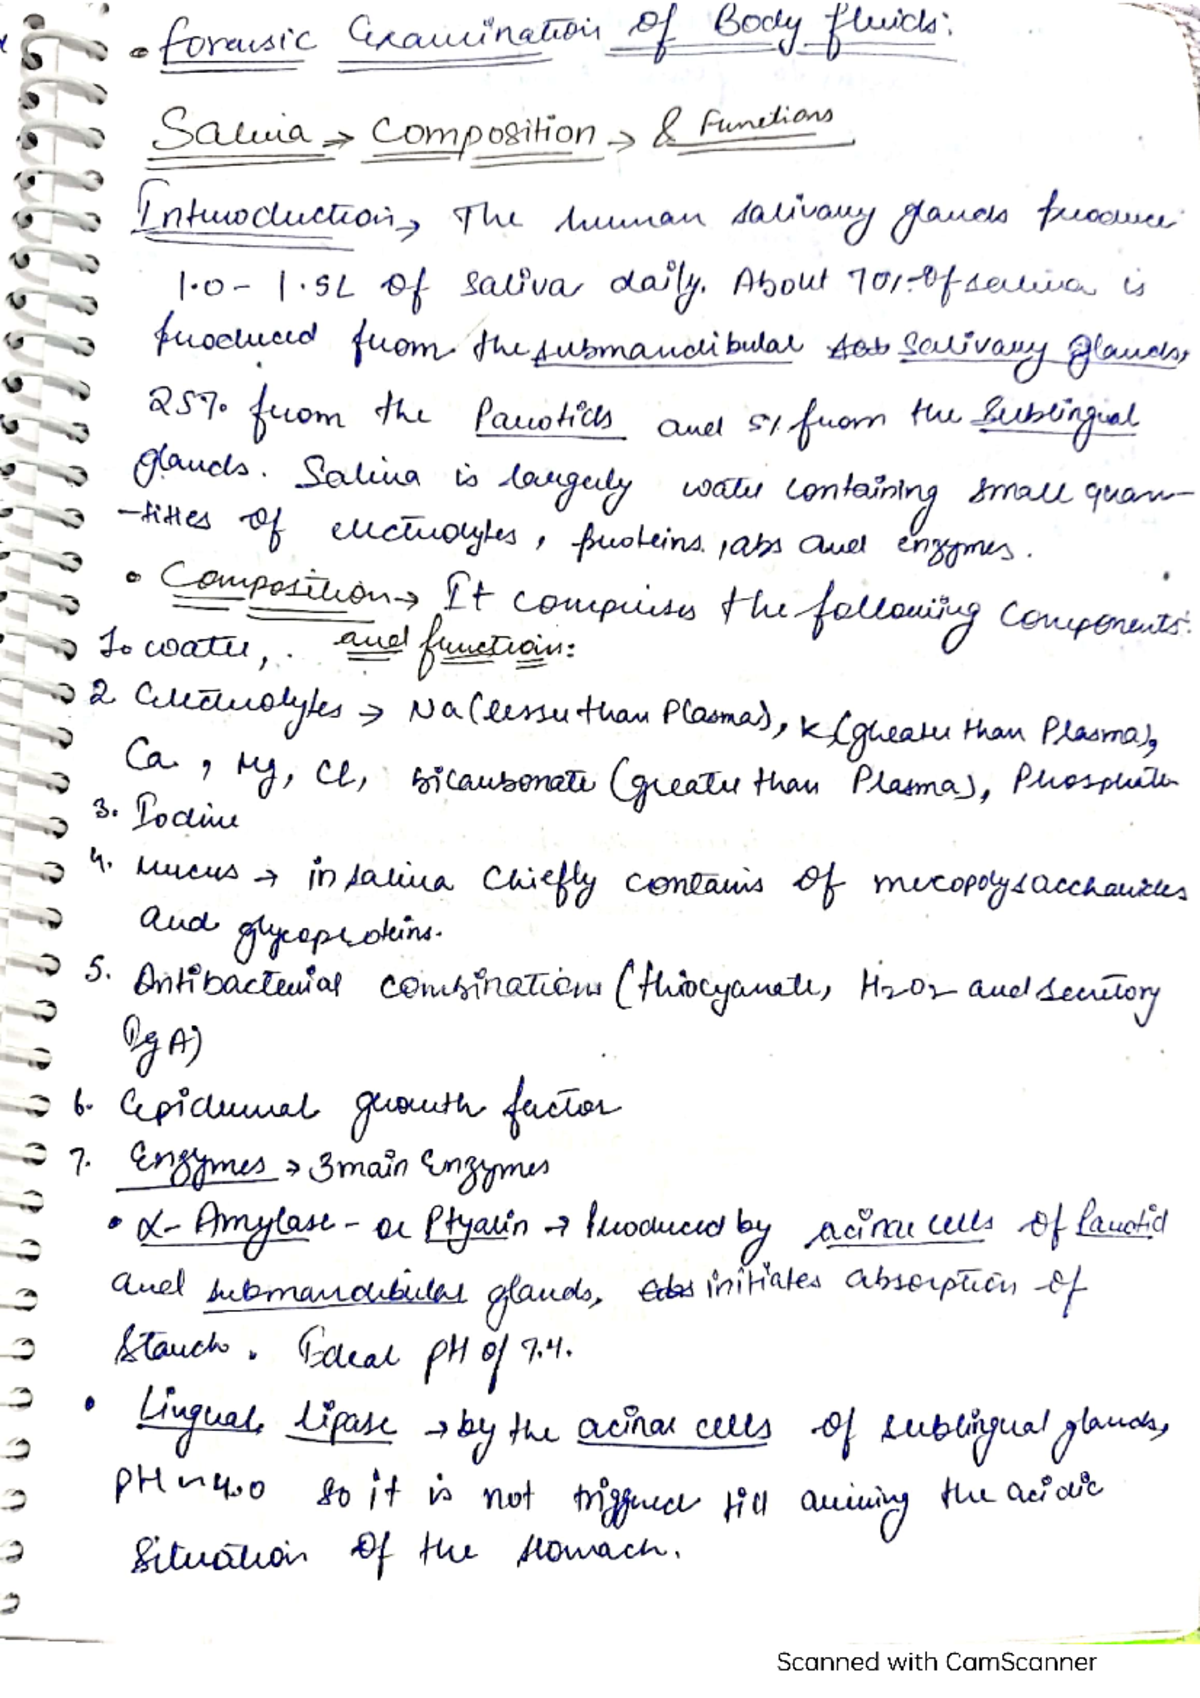 • Forensic Examination of Body fluids:
Saliva → Composition → & Functions
Introduction → The human salivary glands produce
1.0 - 1.5L of saliva daily. About 70% of saliva is
produced from the submandibular salivary glands,
25% from the Parotids and 5% from the Sublingual
glands. Saliva is largely water containing small quan-
-tities of electrolytes, proteins, abs and enzymes.
• Composition → It comprises the following components:
and function:
1. water,
2 Electrolytes → Na (lesser than Plasma), K (greater than Plasma),
Ca, Mg, Cl, bicarbonate (greater than Plasma), Phosphate
3. Iodine
4. Mucus → in saliva chiefly contains of mucopolysaccharides
and glycoproteins.
5. Antibacterial combinations (thiocyanate, H2O2 and secretory
IgA)
6. Epidermal growth factor
7. Enzymes → 3 main Enzymes
• α- Amylase - or Ptyalin → Produced by acinar cells of Parotid
and submandibular glands, initiates absorption of
Starch. Ideal pH of 7.4.
• Lingual lipase → by the acinar cells of sublingual glands,
pH ~ 4.0 so it is not triggered till arriving the acidic
situation of the stomach.
Scanned with CamScanner